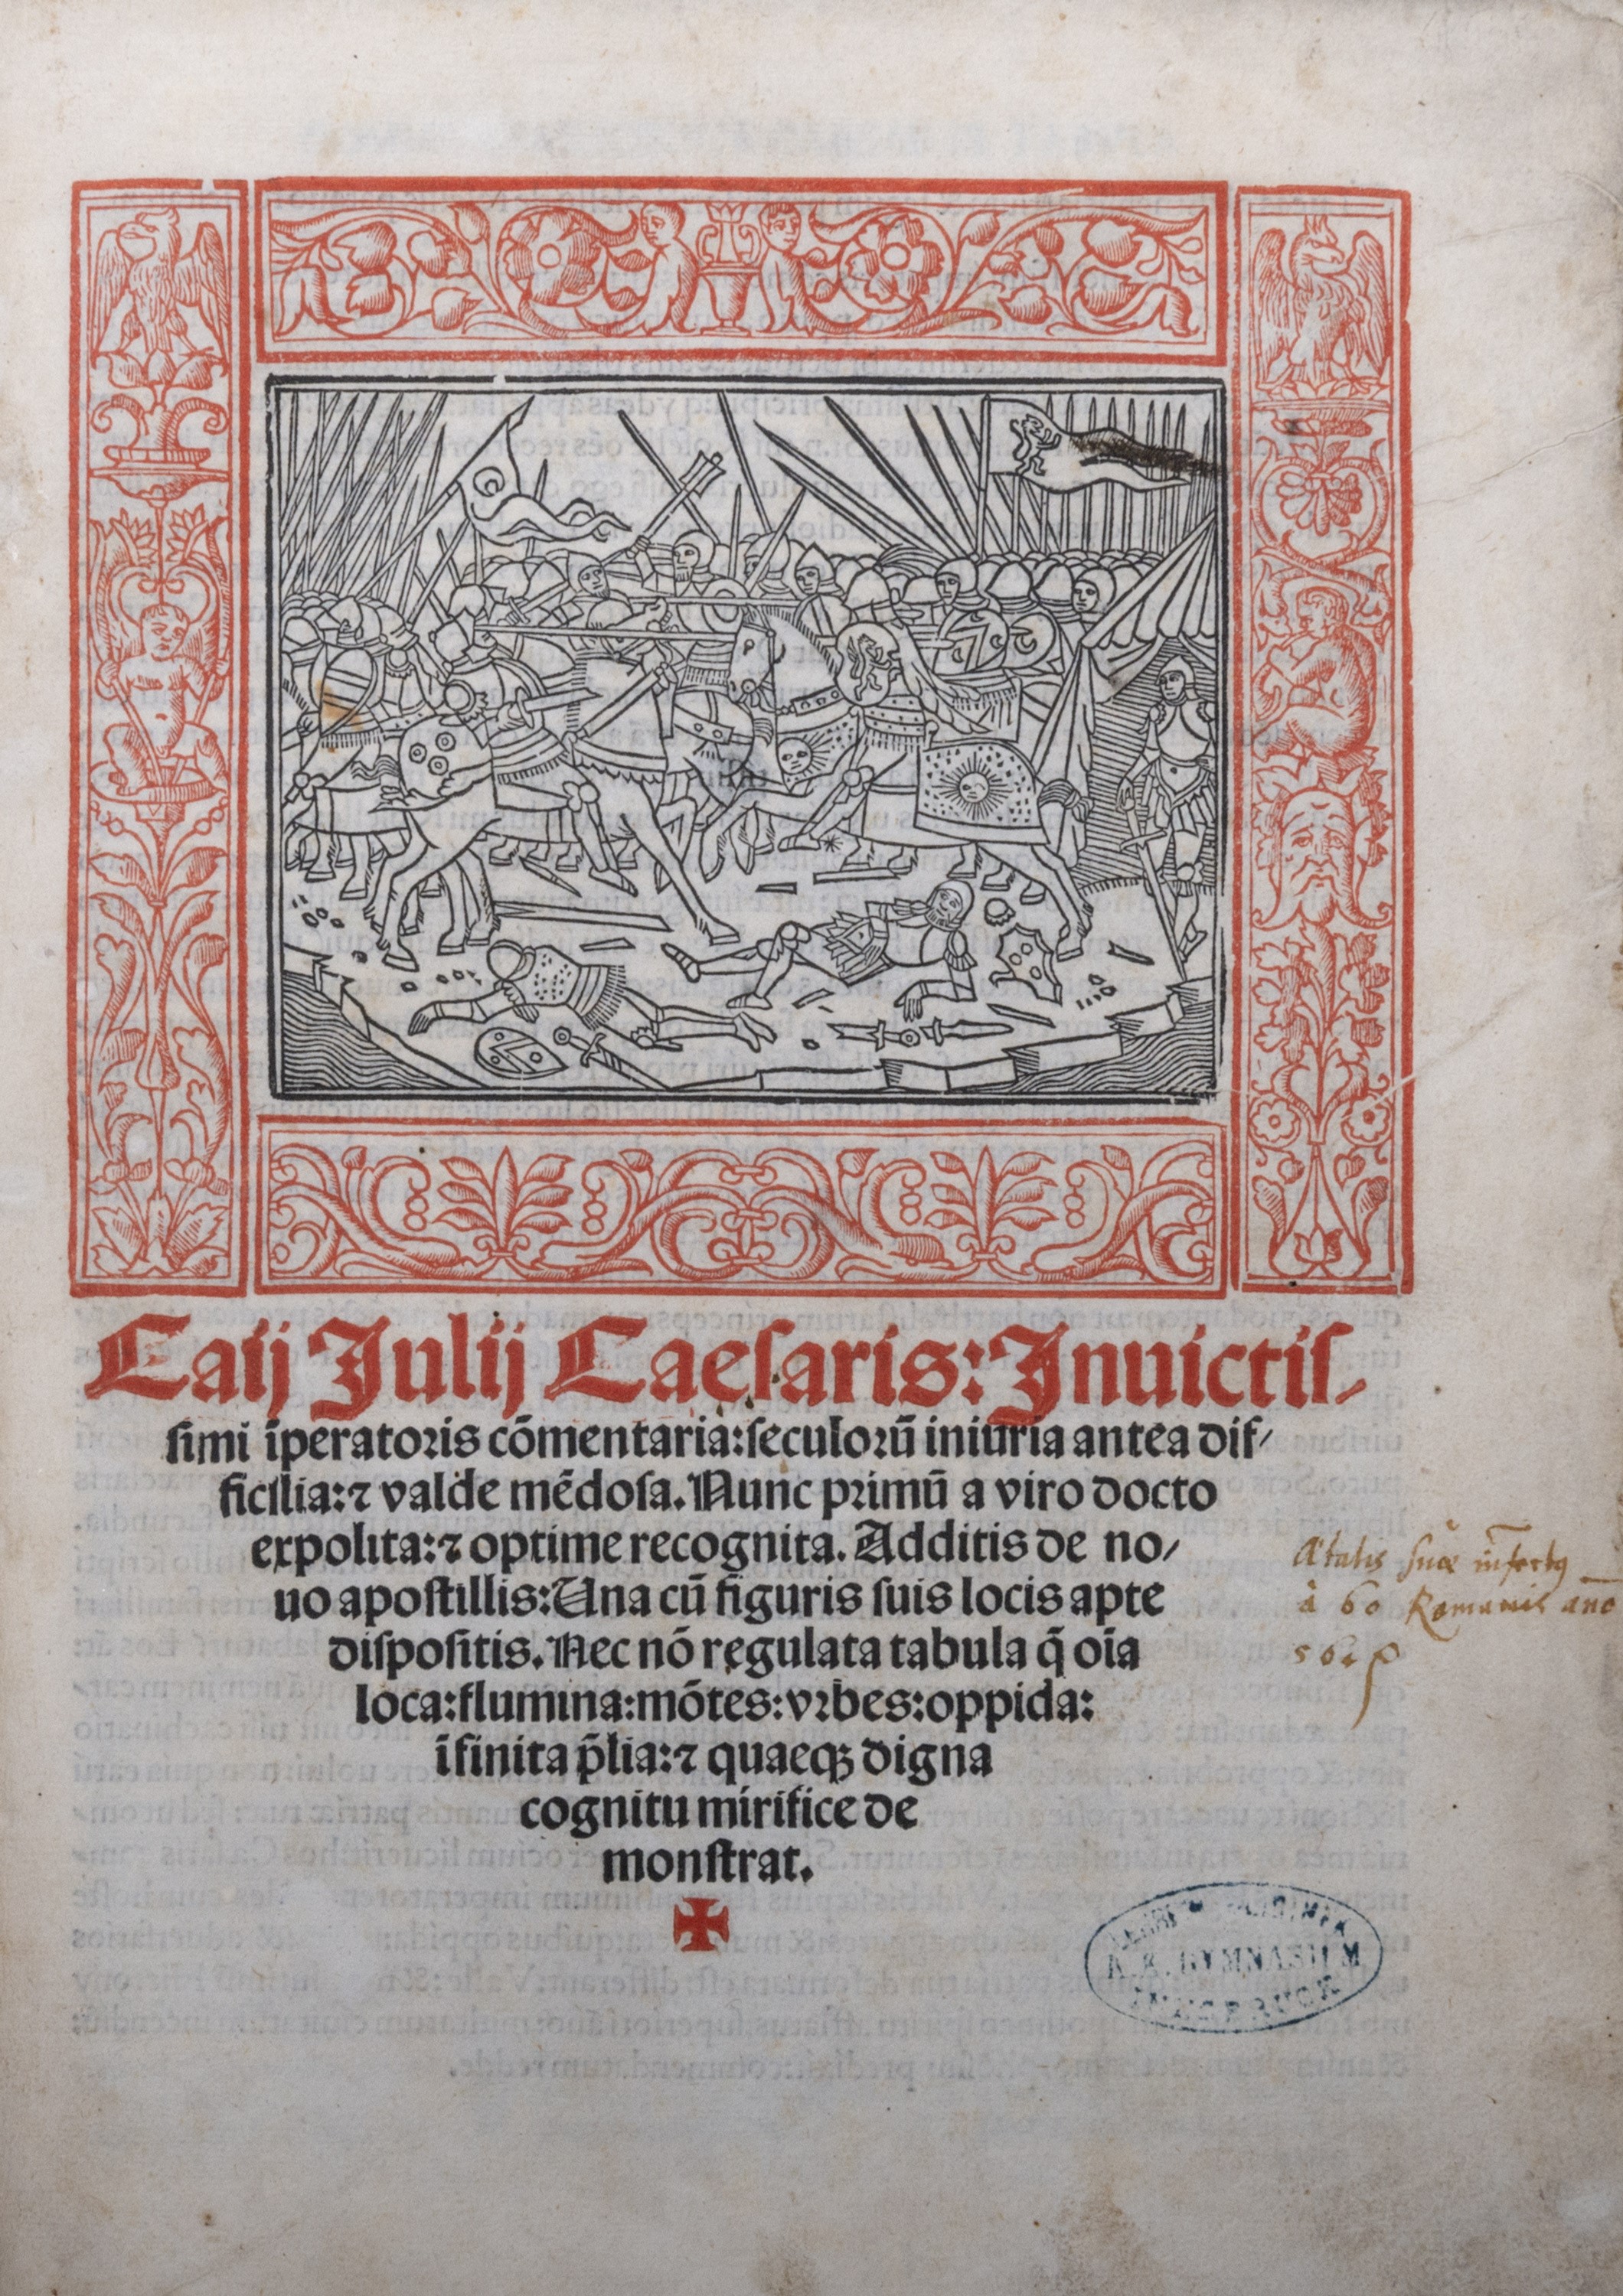 Caij Julij Caeſaris: Inuictiſ⸗
ſimi īperatoꝛis cōmentaria:ſeculoꝛū iniuria antea dif⸗
ficilia:⁊ valde mēdoſa. Nunc pꝛimū a viro docto
expolita:⁊ optime recognita. Additis de no⸗
uo apoſtillis: Una cū figuris ſuis locis apte
diſpoſitis. Nec nō regulata tabula q̄ oīa
loca:flumina:mōtes:vꝛbes:oppida:
īfinita p̄lia:⁊ quaeqꝫ digna
cognitu mirifice de
monſtrat.
Ætatis ſuæ
à 60 Romanis
K. K. GYMNASIUM
INNSBRUCK